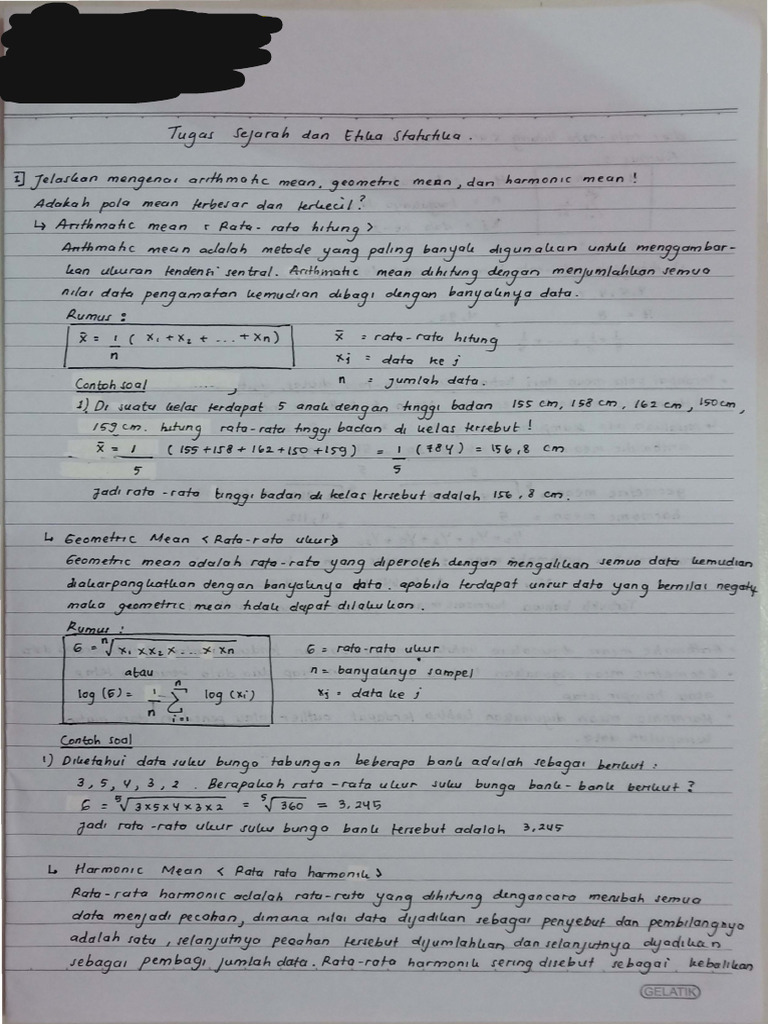 Tugas Sejarah dan Etika Statistika.
1] Jelaskan mengenai arithmatic mean, geometric mean, dan harmonic mean !
Adakah pola mean terbesar dan terkecil ?
↳ Arithmatic mean < Rata-rata hitung >
Arithmatic mean adalah metode yang paling banyak digunakan untuk menggambar-
kan ukuran tendensi sentral. Arithmatic mean dihitung dengan menjumlahkan semua
nilai data pengamatan kemudian dibagi dengan banyaknya data.
Rumus :
x̄ = 1/n ( x₁ + x₂ + ... + xn )
x̄ = rata-rata hitung
xj = data ke j
n = jumlah data.
Contoh soal
1) Di suatu kelas terdapat 5 anak dengan tinggi badan 155 cm, 158 cm, 162 cm, 150 cm,
159 cm. hitung rata-rata tinggi badan di kelas tersebut !
x̄ = 1/5 (155+158+162+150+159) = 1/5 (784) = 156,8 cm
Jadi rata-rata tinggi badan di kelas tersebut adalah 156,8 cm.
↳ Geometric Mean < Rata-rata ukur >
Geometric mean adalah rata-rata yang diperoleh dengan mengalikan semua data kemudian
diakarpangkatkan dengan banyaknya data. apabila terdapat unsur data yang bernilai negatif
maka geometric mean tidak dapat dilakukan.
Rumus :
G = ⁿ√x₁ x x₂ x ... x xn
atau
log (G) = 1/n Σ log (xi)
n
i=1
G = rata-rata ukur
n = banyaknya sampel
xj = data ke j
Contoh soal
1) Diketahui data suku bunga tabungan beberapa bank adalah sebagai berikut :
3, 5, 4, 3, 2 . Berapakah rata-rata ukur suku bunga bank-bank berikut ?
G = ⁵√3x5x4x3x2 = ⁵√360 = 3,245
Jadi rata-rata ukur suku bunga bank tersebut adalah 3,245
↳ Harmonic Mean < Rata rata harmonik >
Rata-rata harmonic adalah rata-rata yang dihitung dengancara merubah semua
data menjadi pecahan, dimana nilai data dijadikan sebagai penyebut dan pembilangnya
adalah satu, selanjutnya pecahan tersebut dijumlahkan dan selanjutnya dijadikan
sebagai pembagi jumlah data. Rata-rata harmonik sering disebut sebagai kebalikan
GELATIK